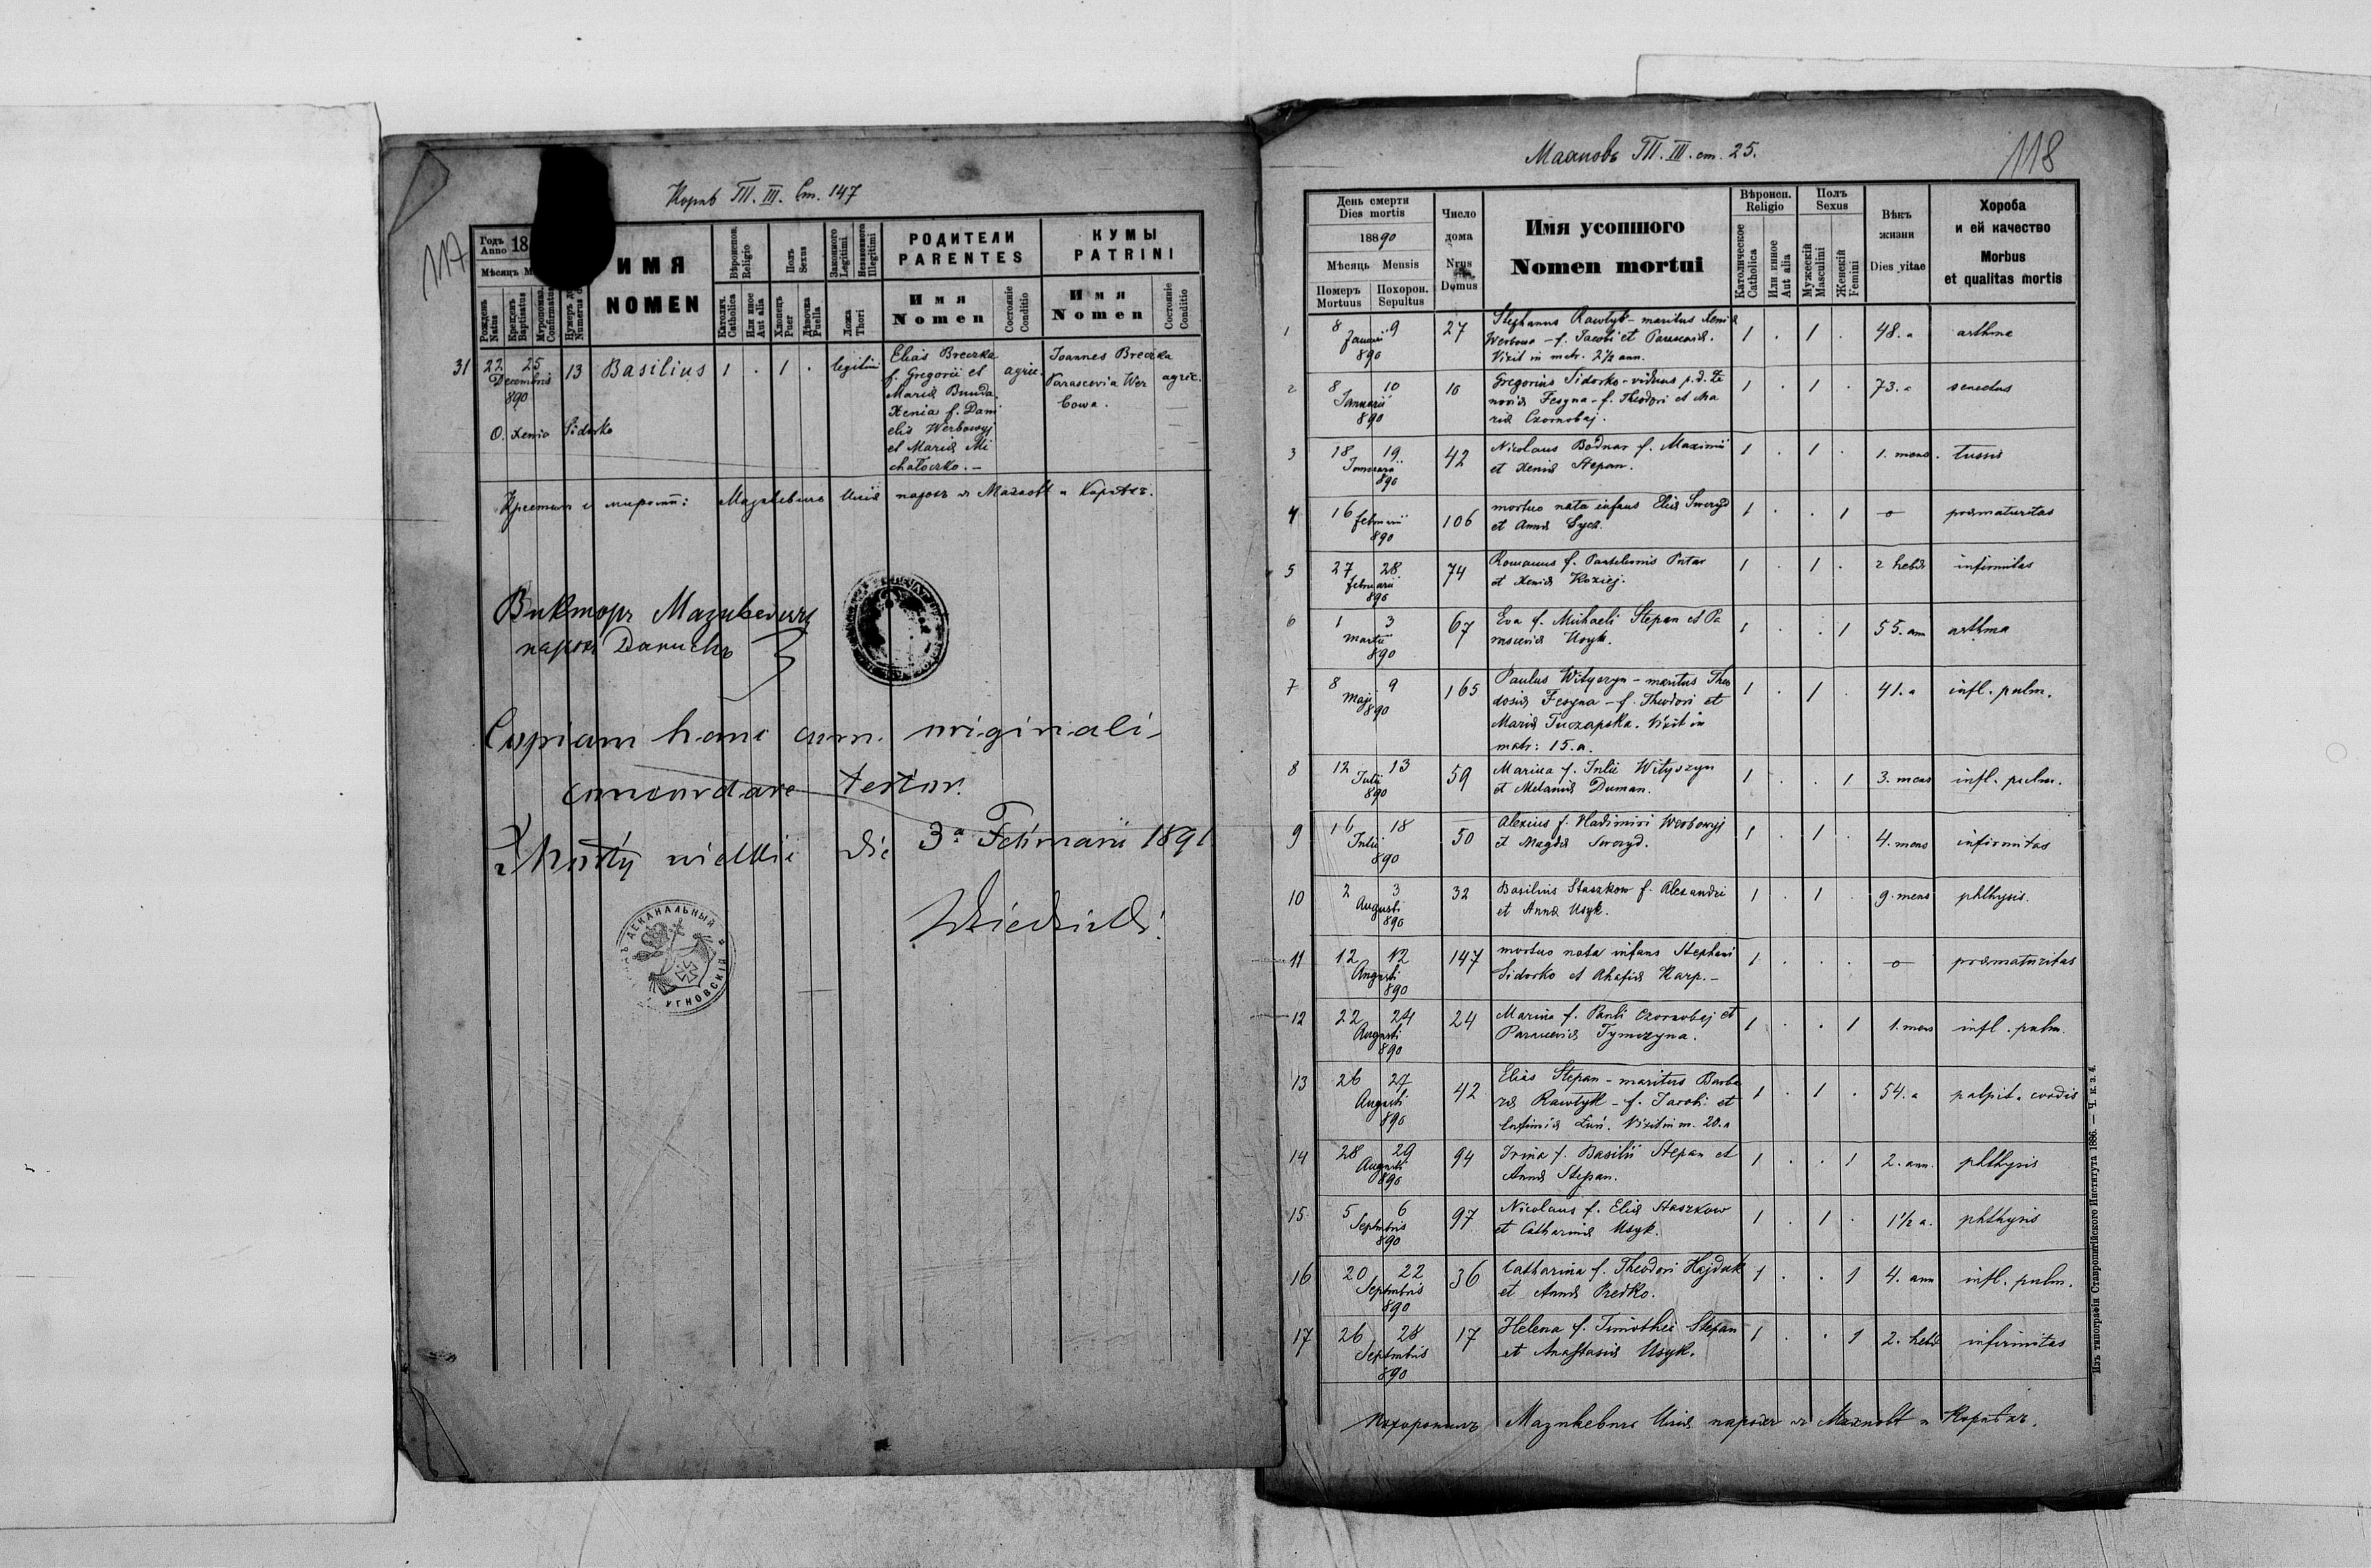 117
Корнѣ ТП. III. Ст. 147
Годъ Anno 18
Мѣсяцъ М
Рожденъ Natus
Крещенъ Baptisatus
Мѵропомаз. Confirmatus
Нумеръ Numerus
ИМЯ
NOMEN
Вѣроиспов. Religio
Католич. Catholica
Или инное Aut alia
Полъ Sexus
Хлопець Puer
Дѣвочка Puella
Законного Legitimi
Незаконного Illegitimi
Ложа Thori
РОДИТЕЛИ
PARENTES
Имя
Nomen
Состояніе Conditio
КУМЫ
PATRINI
Имя
Nomen
Состояніе Conditio
31 22 25 Decembris 890 13 Basilius 1 . 1 . legitimi
Elias Breczka
f. Gregorii et
Maria Bunda.
Xenia f. Dani
elis Werbowyj
et Maria Mi
chałoczko. –
agric.
Joannes Breczka
Parascevia Wer
bowa.
agric.
O. Xenia Sidorko
Крестилъ и миропом: Мазикевичъ парохъ
Викторъ Мазикевичъ
парох
Copiam hanc cum originali
concordare testor.
die 3ª Februarii 1891
ДЕКАНАЛЬНЫЙ
УГНОВСКІЙ
118
Махновъ ТП. III. ст. 25.
День смерти
Dies mortis
18890
Мѣсяць Mensis
Померъ Mortuus
Похорон. Sepultus
Число
дома
Nrus
Domus
Имя усопшого
Nomen mortui
Вѣроисп.
Religio
Католическое Catholica
Или инное Aut alia
Полъ
Sexus
Мужескій Masculini
Женскій Femini
Вѣкъ
жизни
Dies vitae
Хороба
и ей качество
Morbus
et qualitas mortis
1 8 9 Januarii 890 27 Stephanus Rawłyk – maritus Xenia
Werbowa – f. Jacobi et Parascevia.
Vixit in matr. 2½ ann.
1 . 1 . 48. a asthma
2 8 10 Januarii 890 10 Gregorius Sidorko – viduus p. d. Ze
novia Fesyna – f. Theodori et Ma
ria Czornobaj.
1 . 1 . 73. a senectus
3 18 19 Januarii 890 42 Nicolaus Bodnar f. Maximi
et Xenia Stepan.
1 . 1 . 1. mens. tussis
4 16 februarii 890 106 mortuo nata infans Elia Smeryd
et Anna Syca.
1 . . 1 o praematuritas
5 27 28 februarii 890 74 Romanus f. Panteleonis
et Xenia Koziej.
1 . 1 . 2 hebd infirmitas
6 1 3 martii 890 67 Eva f. Michaeli Stepan et Pa
rascevia Usyk.
1 . . 1 55. ann asthma
7 8 9 Maji 890 165 Paulus Wityszyn – maritus Theo
dosia Fesyna – f. Theodori et
Maria Tuczapska. Vixit in
matr: 15. a.
1 . 1 . 41. a infl. pulm.
8 12 13 Julii 890 59 Marina f. Julii Wityszyn
et Melania Duman.
1 . . 1 3. mens infl. pulm.
9 16 18 Julii 890 50 Alexius f. Vladimiri Werbowyj
et Magda Smeryd.
1 . 1 . 4. mens infirmitas
10 2 3 Augusti 890 32 Basilius Staszkow f. Alexandri
et Anna Usyk.
1 . 1 . 9. mens phthysis.
11 12 12 Augusti 890 147 mortuo nata infans Stephani
Sidorko et Ahafia Karp. –
1 . . . o praematuritas
12 22 24 Augusti 890 24 Marina f. Pauli Czornobaj et
Parascevia Tymczyna.
1 . . 1 1. mens infl. pulm.
13 26 27 Augusti 890 42 Elias Stepan – maritus Barba
ra Rawłyk – f. Jacobi et
Eufimia Łuń. Vixit in m. 20. a
1 . 1 . 54. a palpit. cordis
14 28 29 Augusti 890 94 Irina f. Basilii Stepan et
Anna Stepan.
1 . . 1 2. ann. phthysis
15 5 6 Septembris 890 97 Nicolaus f. Elia Staszkow
et Catharina Usyk.
1 . 1 . 1½ a. phthysis
16 20 22 Septembris 890 36 Catharina f. Theodori Hajduk
et Anna Predko.
1 . . 1 4. ann infl. pulm.
17 26 28 Septembris 890 17 Helena f. Timothei Stepan
et Anastasia Usyk.
1 . . 1 2. hebd infirmitas
Похоронилъ Мазикевичъ парохъ
Изъ типографіи Ставропигійского Института 1886. — Ч. к. з. 4.